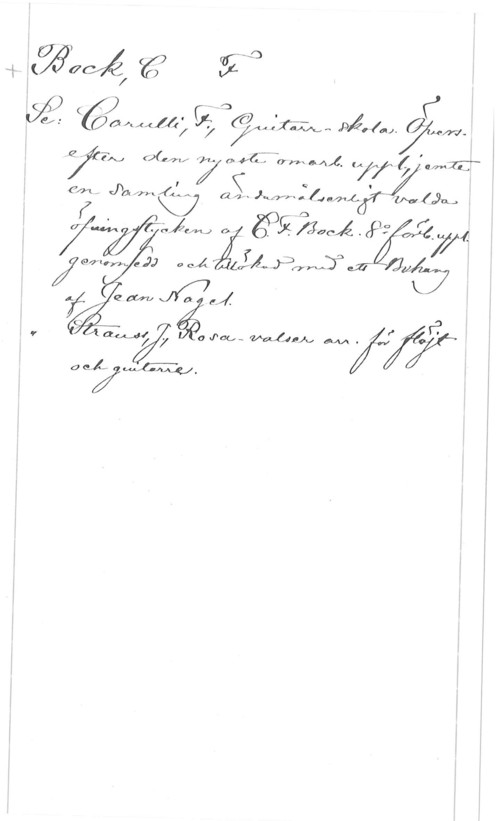 + Bock, C F
Se: Carulli, F., Guitarr-skola. Öfvers.
efter den nyaste omarb. uppl., jemte
en samling ändamålsenligt valda
öfningsstycken af C. F. Bock. 8:e förb. uppl.
genomsedd och tillökad med ett Bihang
af Jean Nagel.
" Strauss, J., Rosa-valser arr. för flöjt
och guitarre.